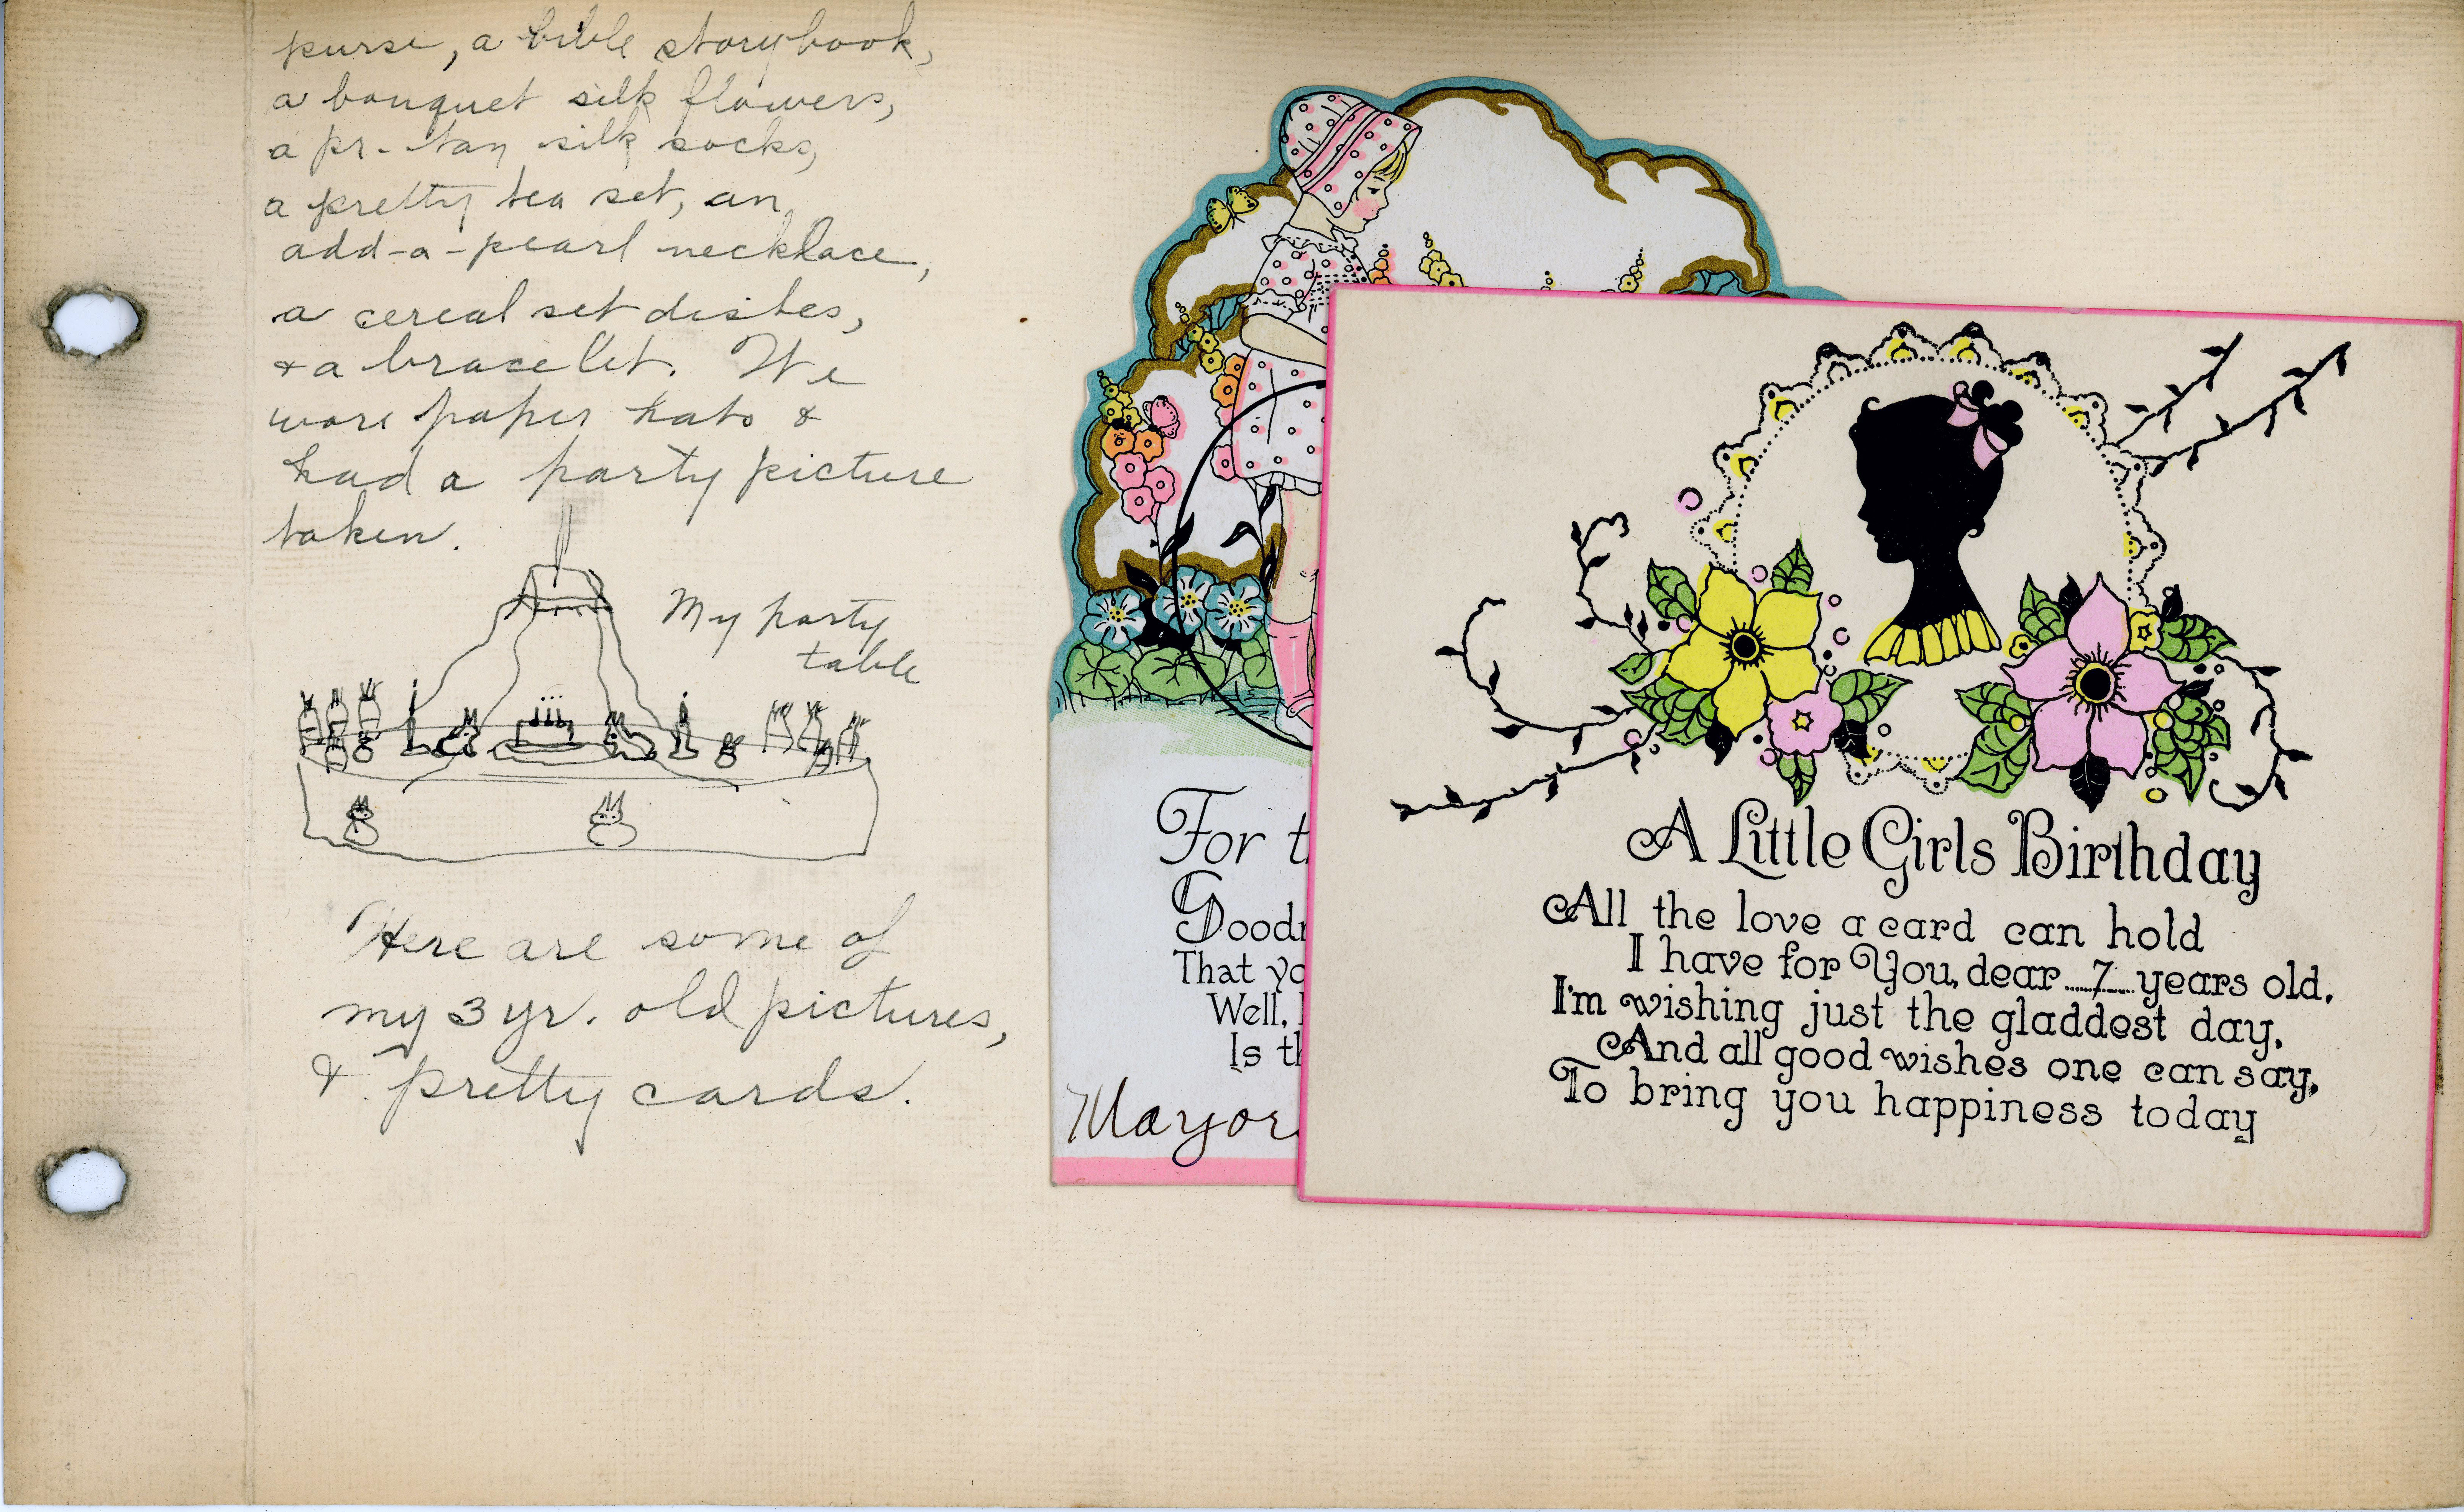 purse, a bible storybook,
a bouquet silk flowers,
a pr. tan silk socks,
a pretty tea set, an
add-a-pearl necklace,
a cereal set dishes,
& a bracelet. We
wore paper hats &
had a party picture
taken.
My party
table
Here are some of
my 3 yr. old pictures,
& pretty cards.
For t
Good
That yo
Well,
Is th
Marjor
A Little Girls Birthday
All the love a card can hold
I have for You, dear 7 years old.
I'm wishing just the gladdest day,
And all good wishes one can say,
To bring you happiness today